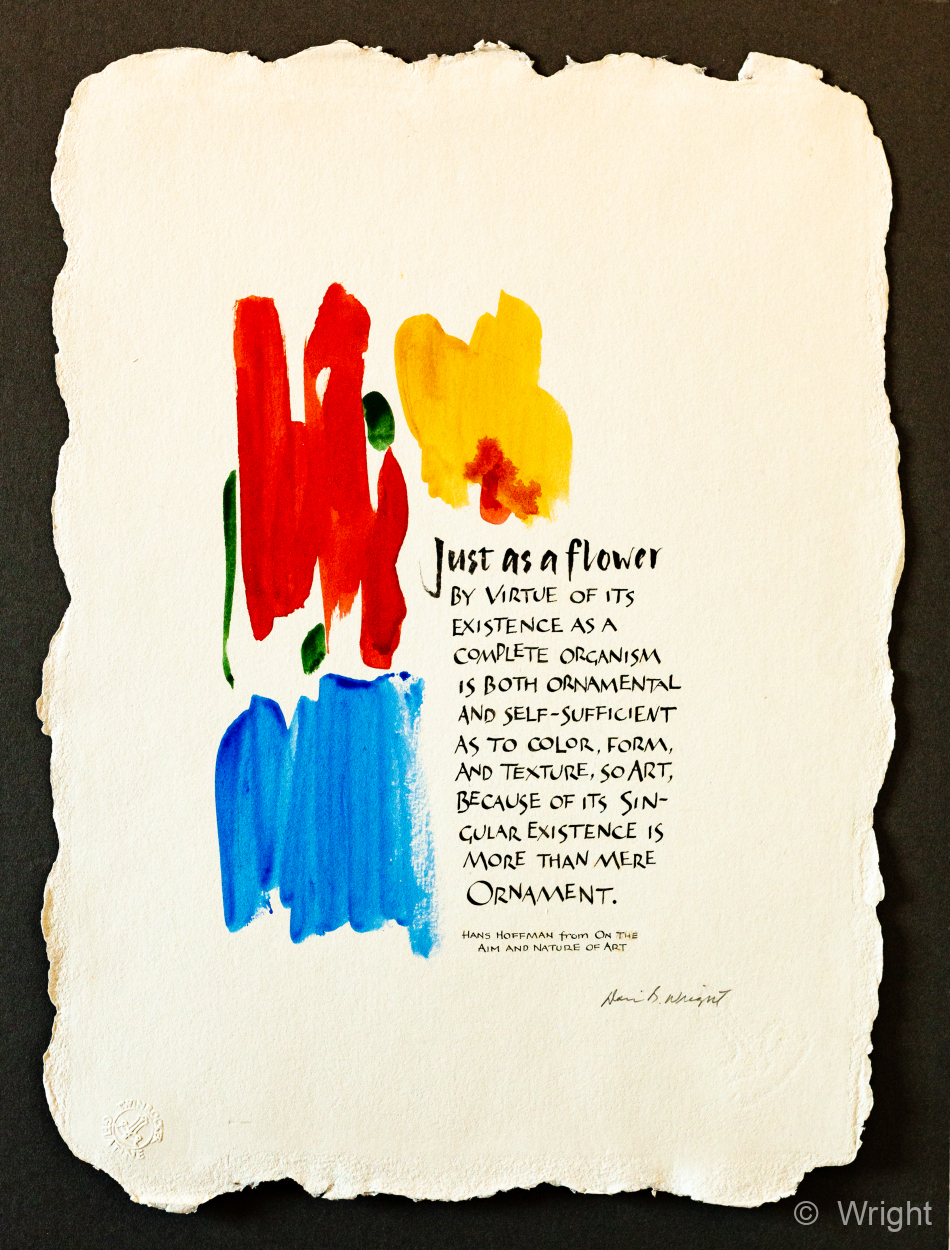 Just as a flower
BY VIRTUE OF ITS
EXISTENCE AS A
COMPLETE ORGANISM
IS BOTH ORNAMENTAL
AND SELF-SUFFICIENT
AS TO COLOR, FORM,
AND TEXTURE, SO ART,
BECAUSE OF ITS SIN-
GULAR EXISTENCE IS
MORE THAN MERE
ORNAMENT.
HANS HOFFMAN from ON THE
AIM AND NATURE OF ART
B. Wright
© Wright